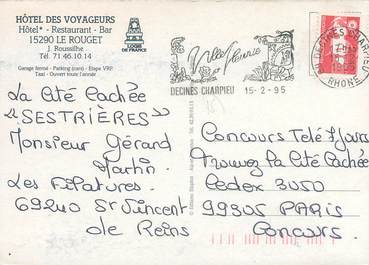 HÔTEL DES VOYAGEURS
Hôtel* - Restaurant - Bar
15290 LE ROUGET
J. Roussilhe
Tél. 71 46.10.14
Garage fermé - Parking (cars) - Étape VRP
Taxi - Ouvert toute l'année
LOGIS
DE FRANCE
Ville fleurie
DECINES CHARPIEU 15-2-95
DECINES CHARPIEU
RHONE
La Cité Cachée
"SESTRIÈRES"
Monsieur Gérard
Martin
Les Filatures.
69240 St Vincent
de Reins
Concours Télé 7 Jours
Trouvez la Cité Cachée
Cedex 3050
99305 PARIS
Concours.